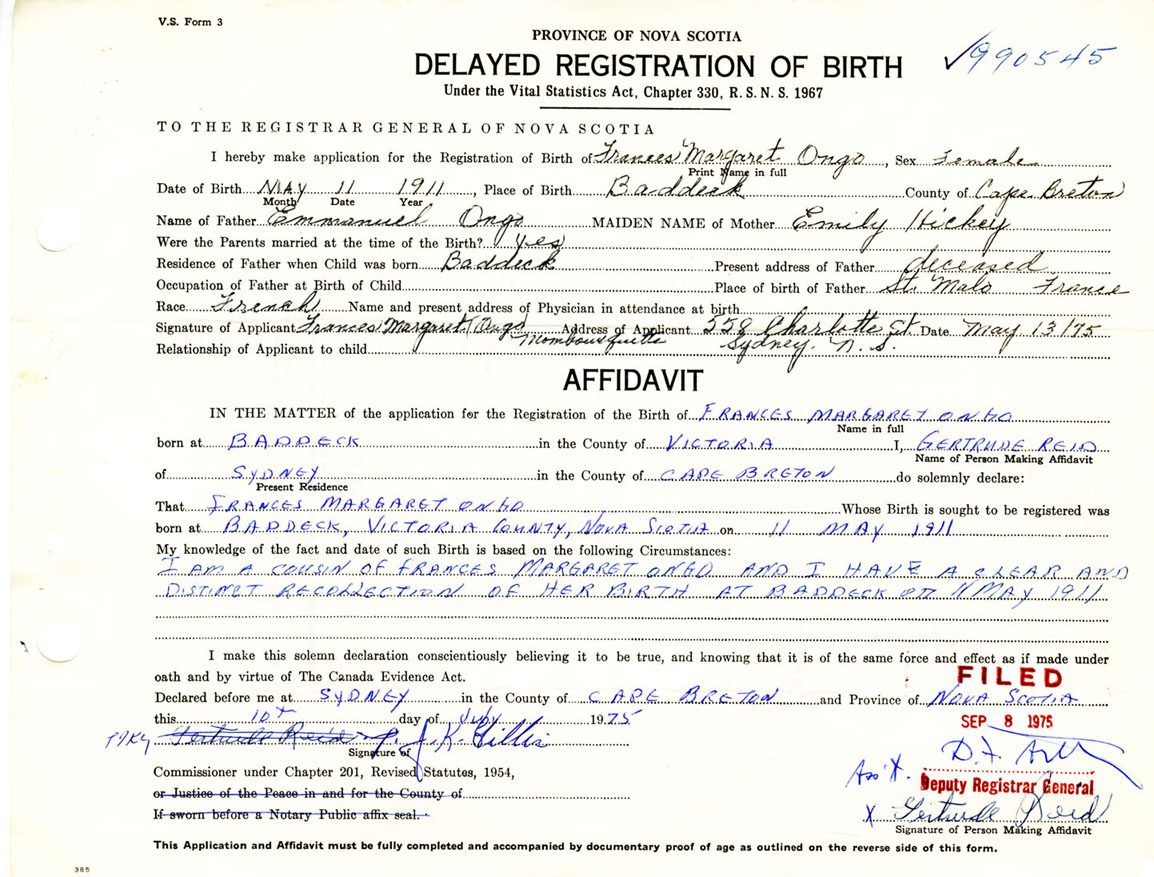 V.S. Form 3
PROVINCE OF NOVA SCOTIA
DELAYED REGISTRATION OF BIRTH
√990545
Under the Vital Statistics Act, Chapter 330, R. S. N. S. 1967
TO THE REGISTRAR GENERAL OF NOVA SCOTIA
I hereby make application for the Registration of Birth of Frances Margaret Ongo, Sex Female
Print Name in full
Date of Birth May 11 1911, Place of Birth Baddeck County of Cape Breton
Month Date Year
Name of Father Emmanuel Ongo MAIDEN NAME of Mother Emily Hickey
Were the Parents married at the time of the Birth? yes
Residence of Father when Child was born Baddeck Present address of Father deceased
Occupation of Father at Birth of Child Place of birth of Father St. Malo France
Race French Name and present address of Physician in attendance at birth
Signature of Applicant Frances Margaret Ongo Address of Applicant 558 Charlotte St. Date May 13/75
Mombourquette Sydney. N.S.
Relationship of Applicant to child
AFFIDAVIT
IN THE MATTER of the application for the Registration of the Birth of FRANCES MARGARET ONGO
Name in full
born at BADDECK in the County of VICTORIA I, GERTRUDE REID
Name of Person Making Affidavit
of SYDNEY in the County of CAPE BRETON do solemnly declare:
Present Residence
That FRANCES MARGARET ONGO Whose Birth is sought to be registered was
born at BADDECK, VICTORIA COUNTY, NOVA SCOTIA on 11 MAY 1911
My knowledge of the fact and date of such Birth is based on the following Circumstances:
I AM A COUSIN OF FRANCES MARGARET ONGO AND I HAVE A CLEAR AND
DISTINCT RECOLLECTION OF HER BIRTH AT BADDECK ON 11 MAY 1911
I make this solemn declaration conscientiously believing it to be true, and knowing that it is of the same force and effect as if made under
oath and by virtue of The Canada Evidence Act.
FILED
Declared before me at SYDNEY in the County of CAPE BRETON and Province of NOVA SCOTIA
this 10th day of July 1975
SEP 8 1975
Gertrude Reid J.K. Gillis
Signature of
D.F.
Commissioner under Chapter 201, Revised Statutes, 1954,
Ass't.
Deputy Registrar General
or Justice of the Peace in and for the County of
X Gertrude Reid
If sworn before a Notary Public affix seal.
Signature of Person Making Affidavit
This Application and Affidavit must be fully completed and accompanied by documentary proof of age as outlined on the reverse side of this form.
385